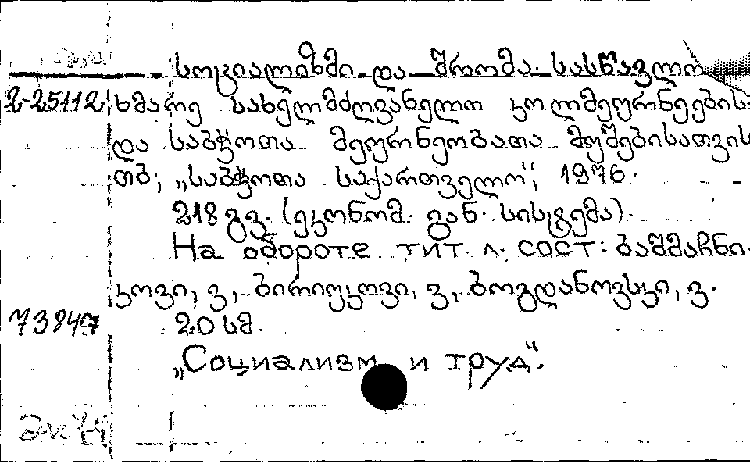 სოციალიზმი და შრომა. სასწავლო
2-25112 ხმარე სახელმძღვანელო კოლმეურნეების
და საბჭოთა მეურნეობათა მუშებისათვის
თბ; „საბჭოთა საქართველო“, 1976.
218 გვ. (ეკონომ. გან. სისტემა).
На обороте тит. л. сост: ბაშმაჩნი-
კოვი, ვ., ბირიუკოვი, ვ., ბოგდანოვსკი, ვ.
73847 20 სმ.
„Социализм и труд“.